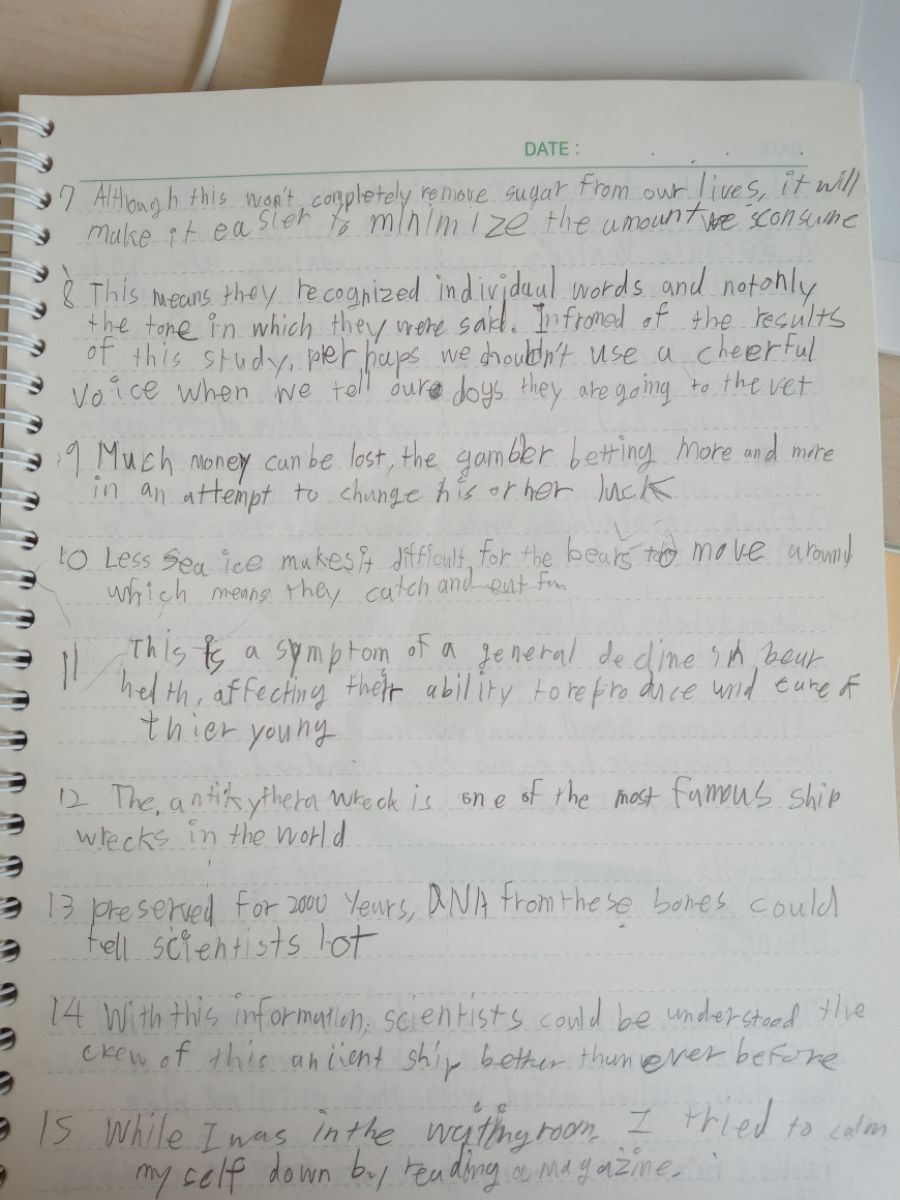 DATE :
7 Although this won't completely remove sugar from our lives, it will
make it easier to minimize the amount we sconsume
8 This means they recognized individual words and notonly
the tone in which they were said. Infromed of the results
of this study, perhaps we shouldn't use a cheerful
voice when we tell our doys they are going to the vet
9 Much money can be lost, the gambler betting more and more
in an attempt to change his or her luck
10 Less sea ice makes it difficult for the bears to move around
which means they catch and eat
11 This is a symptom of a general decline in bear
helth, affecting their ability to reproduce and care of
thier young
12 The antikythera wreck is one of the most famous ship
wrecks in the world
13 preserved for 2000 years, DNA from these bones could
tell scientists lot
14 With this information, scientists could be understood the
crew of this aniient ship bether than ever before
15 While I was in the waiting room, I tried to calm
my self down by reading a magazine.